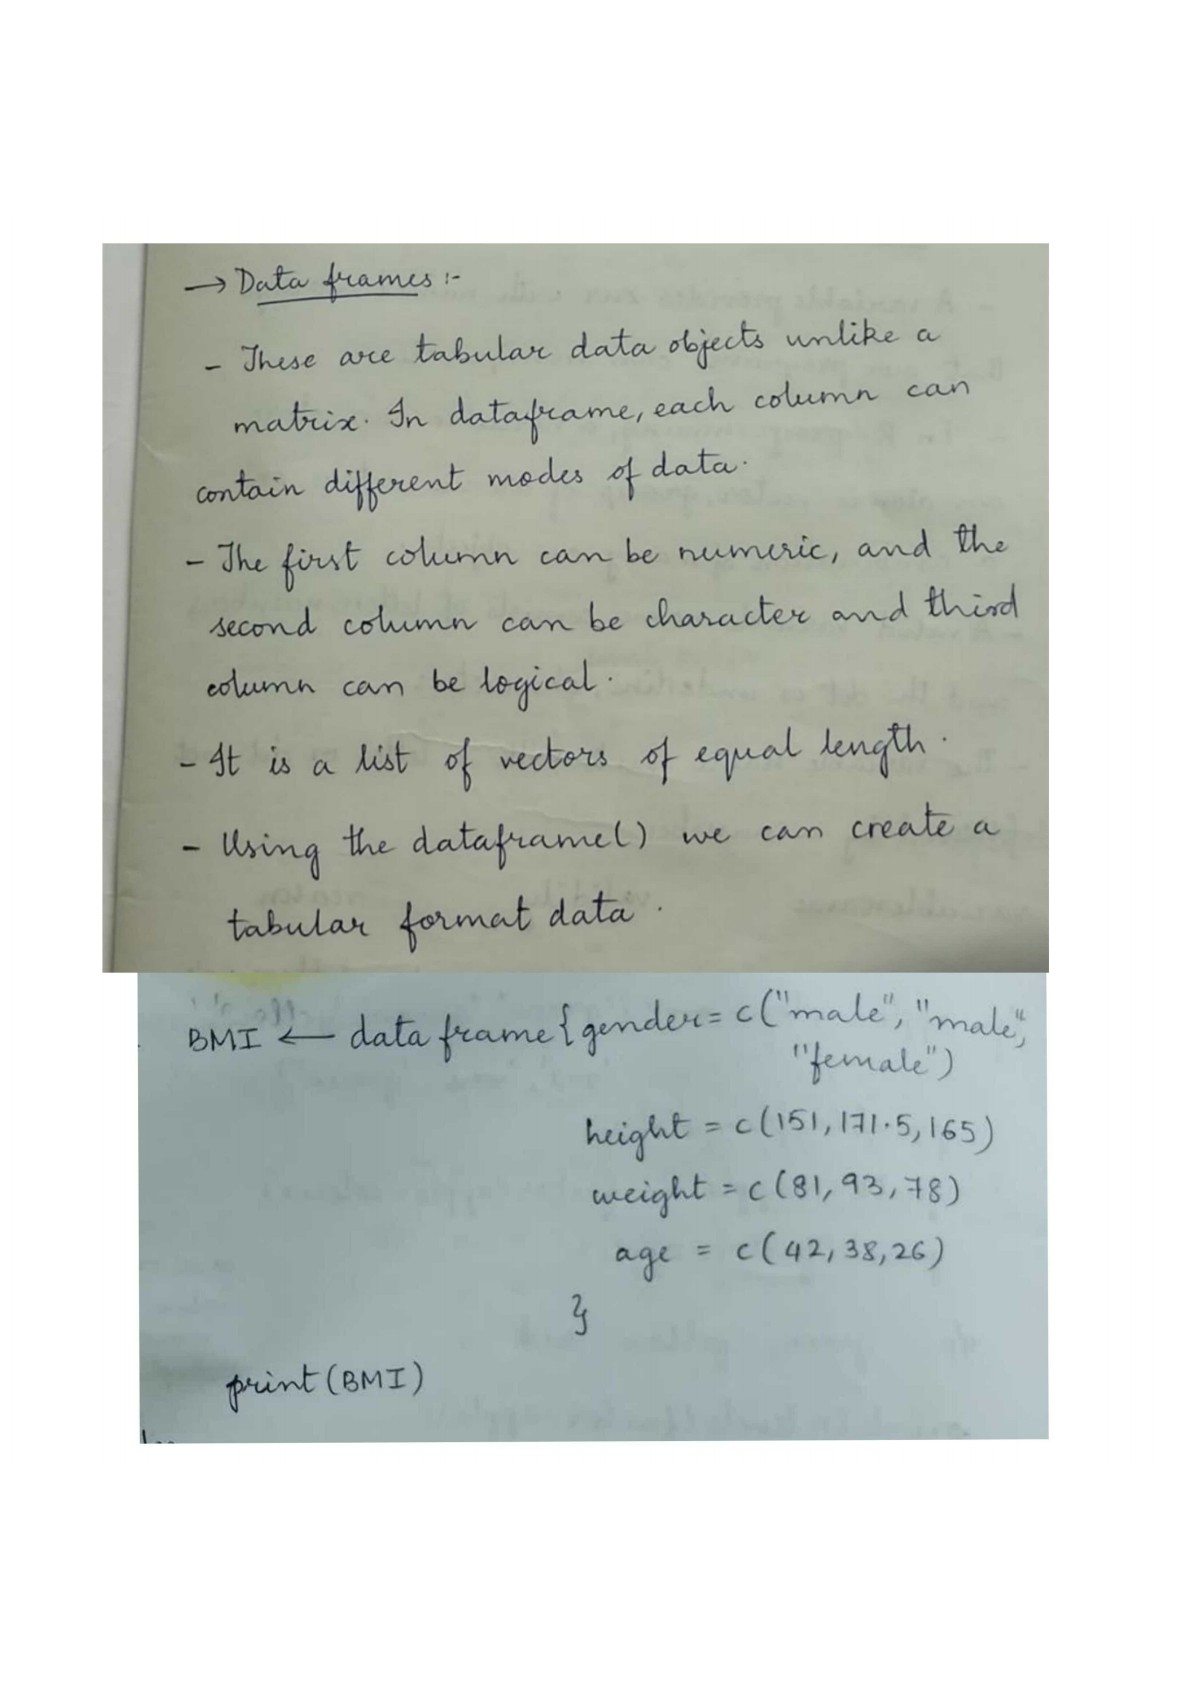 → Data frames :-
- These are tabular data objects unlike a
matrix. In dataframe, each column can
contain different modes of data.
- The first column can be numeric, and the
second column can be character and third
column can be logical.
- It is a list of vectors of equal length.
- Using the dataframe() we can create a
tabular format data.
BMI ← data frame { gender = c("male", "male",
"female")
height = c(151, 171.5, 165)
weight = c(81, 93, 78)
age = c(42, 38, 26)
}
print (BMI)